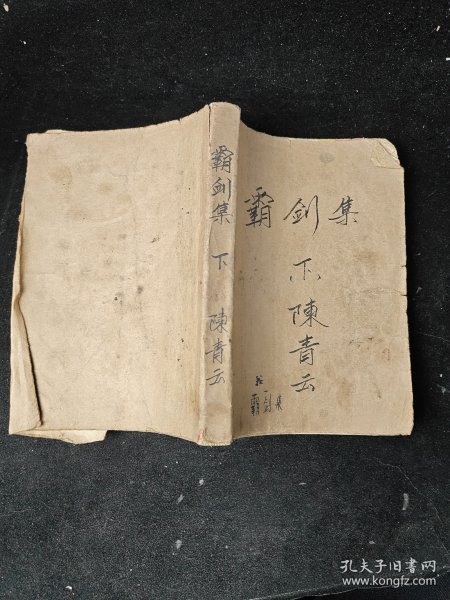 霸剑集
下
陳青云
霸剑集
下
陳青云
霸剑集
孔夫子旧书网
www.kongfz.com